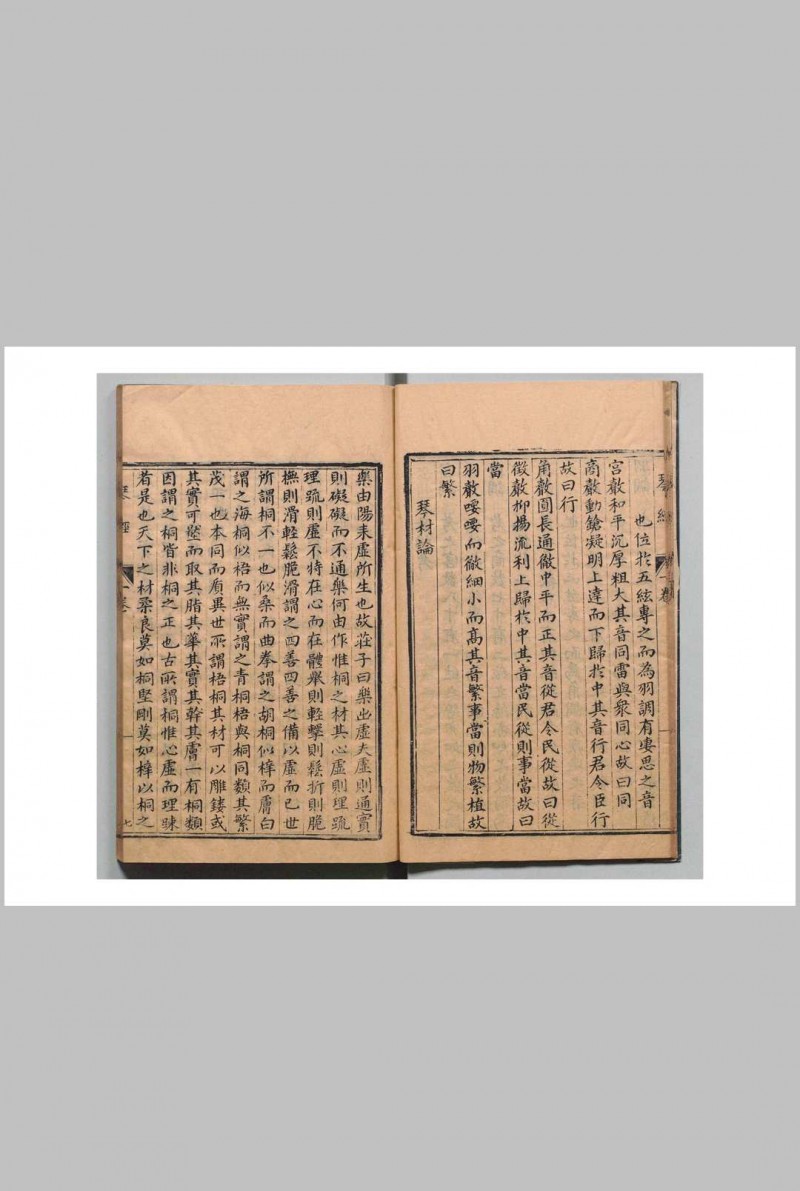 琴經 一卷
也位扵五絃專之而為羽調有凄思之音
宮散和平沉厚粗大其音同雷與衆同心故曰同
商散動鎗凝明上達而下歸扵中其音行君令臣行
故曰行
角散圓長通徹中平而正其音從君令民從故曰從
徵散抑揚流利上歸扵中其音當民從則事當故曰
當
羽散喓喓而徹細小而髙其音繁事當則物繁植故
曰繁
琴材論
樂由陽来虛所生也故荘子曰樂出虛夫虛則通實
則礙礙而不通樂何由作惟桐之材其心虛則理疏
理疏則虛不特在心而在體舉則輕擊則鬆折則脆
撫則滑輕鬆脆滑謂之四善四善之備以虛而已世
所謂桐不一也似桑而曲拳謂之胡桐似梓而膚白
謂之海桐似梧而無實謂之青桐梧與桐同類其繁
茂一也本同而質異世所謂梧桐其材可以雕鏤或
其實可𤎅而取其脂其華其實其幹其膚一有桐類
因謂之桐皆非桐之正也古所謂桐惟心虛而理踈
者是也天下之材柔良莫如桐堅剛莫如梓以桐之
琴經 一卷 七